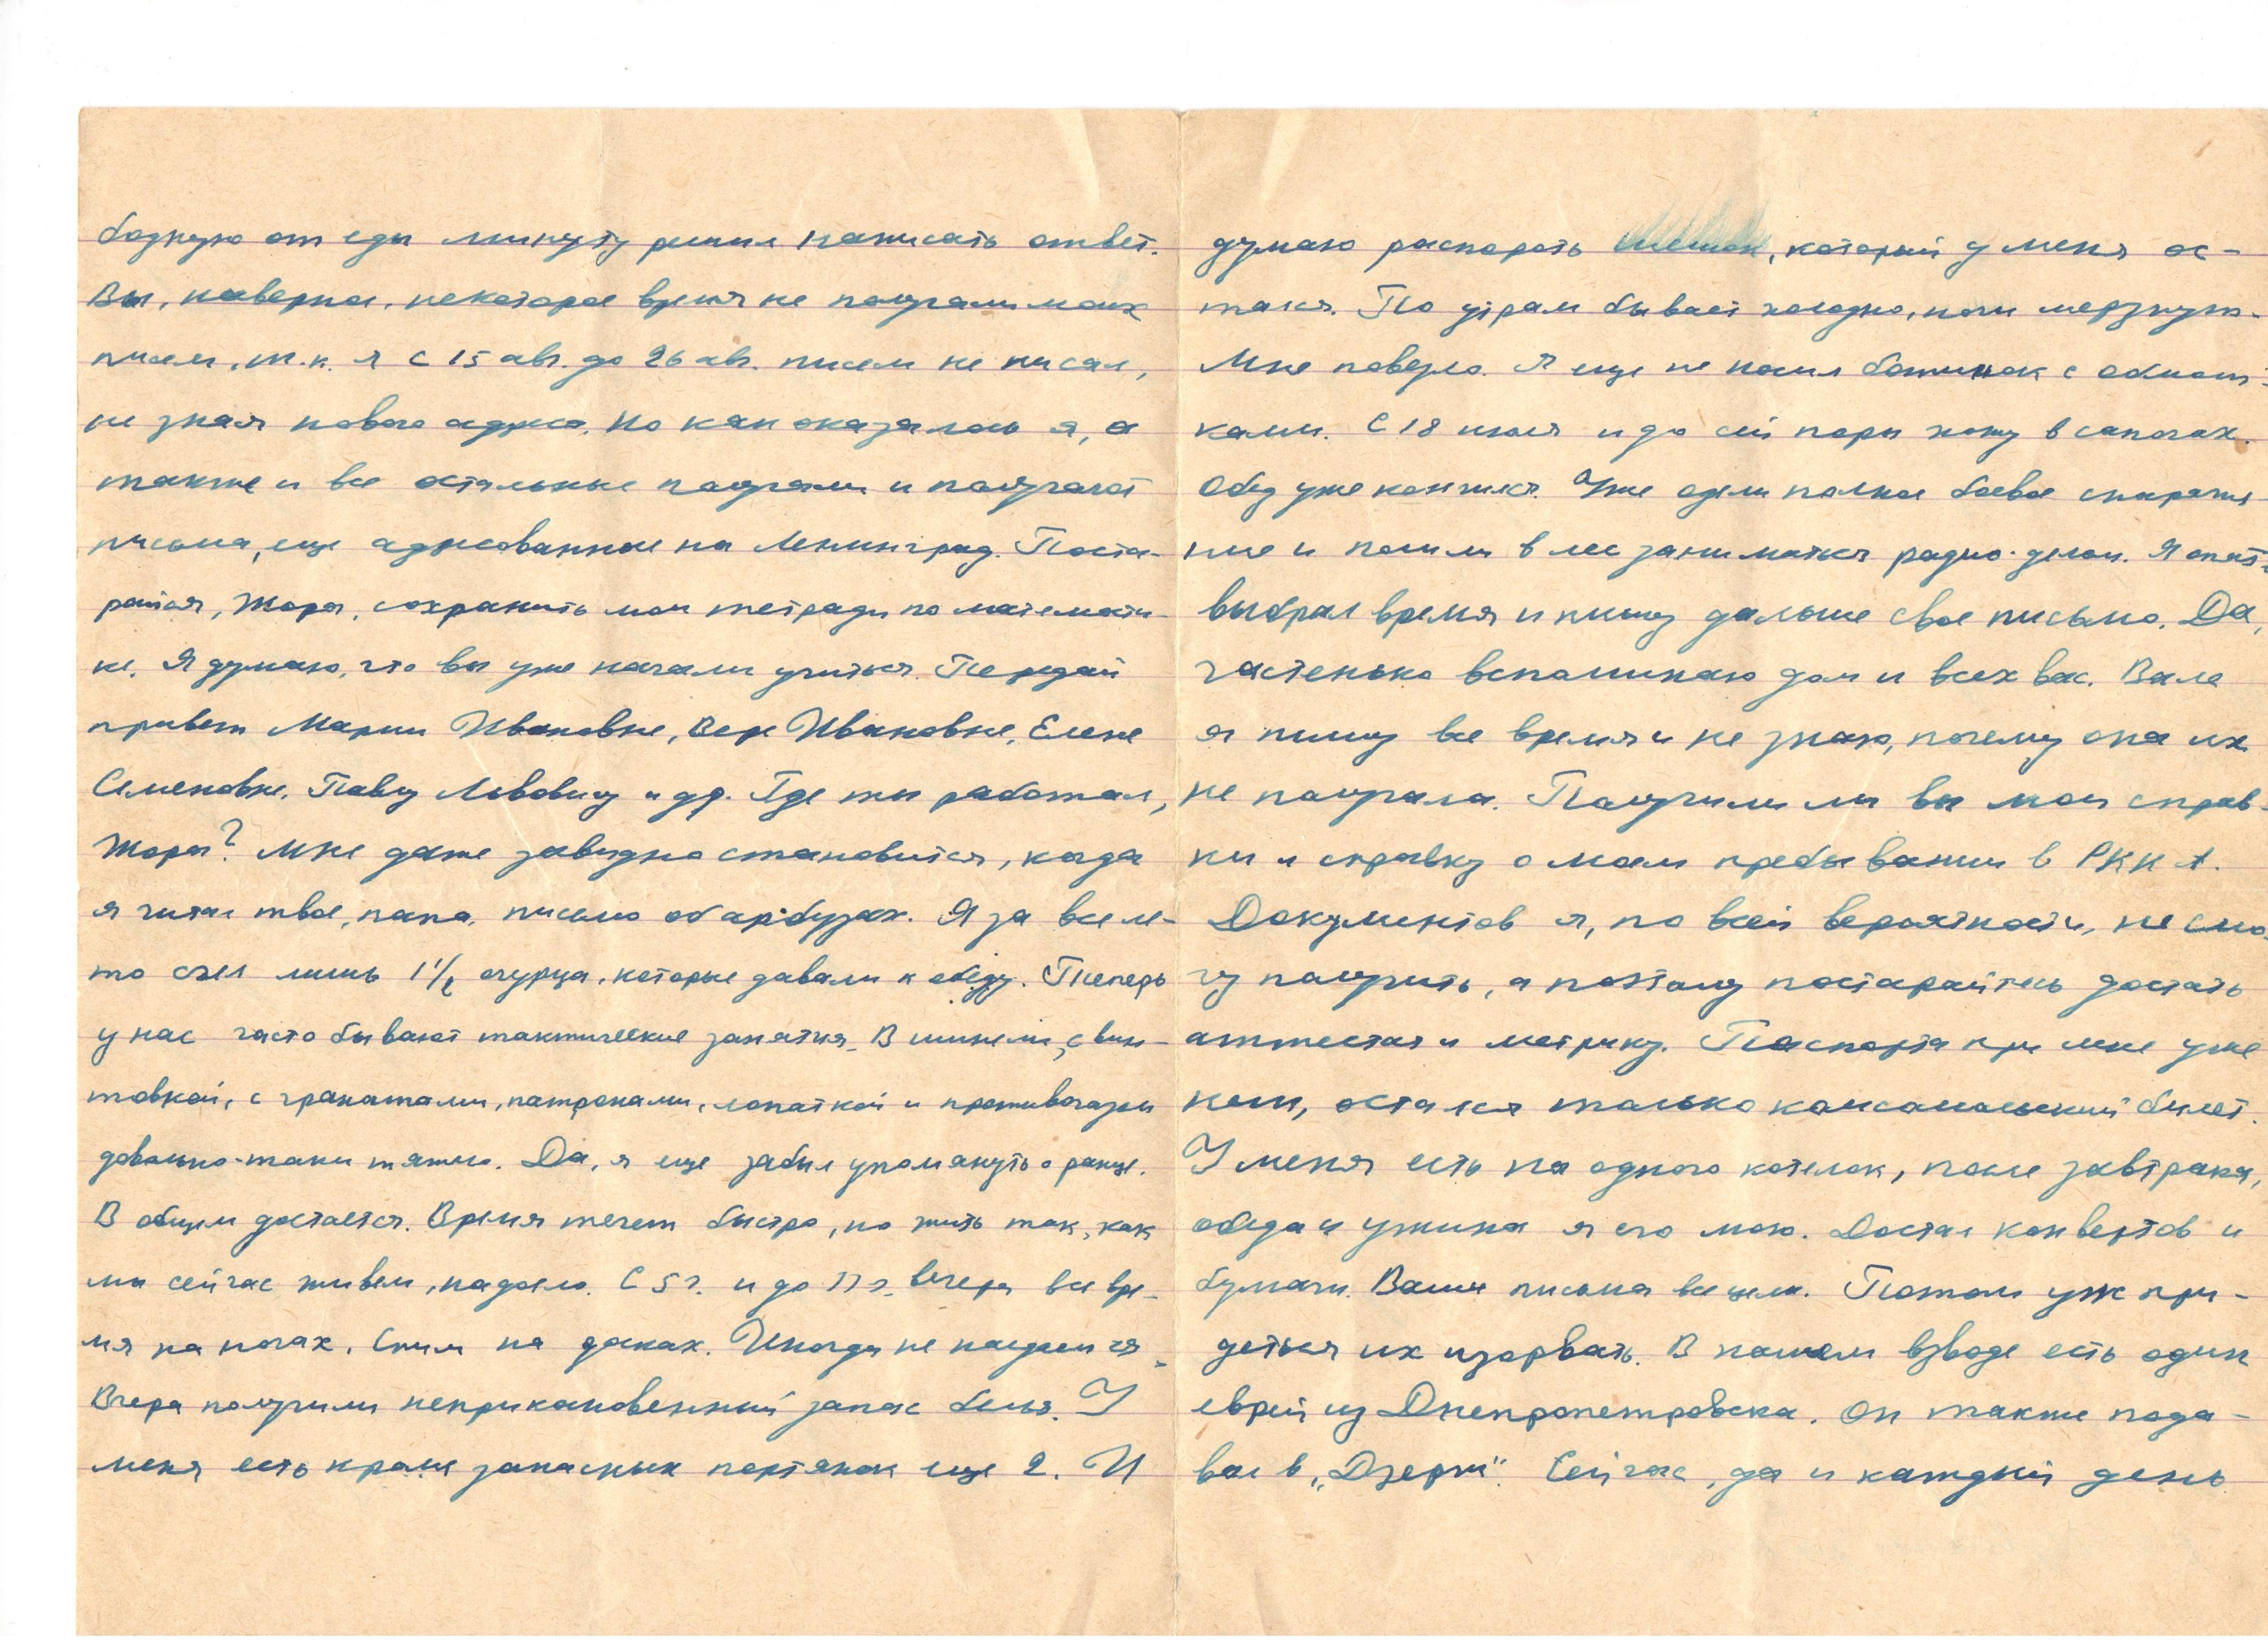 бодную от еды минуту решил написать ответ.
Вы, наверное, некоторое время не получали моих
писем, т.к. я с 15 авг. до 26 авг. писем не писал,
не зная нового адреса. Но как оказалось я, а
также и все остальные получали и получают
письма, еще адресованные на Ленинград. Поста-
райся, Жора, сохранить мои тетради по математи-
ке. Я думаю, что вы уже начали учиться. Передай
привет Марии Ивановне, Вере Ивановне, Елене
Семеновне, Павлу Львовичу и др. Где ты работал,
Жора? Мне даже завидно становится, когда
я читал твое, папа, письмо об арбузах. Я за все ле-
то съел лишь 1 1/2 огурца, которые давали к обеду. Теперь
у нас часто бывают тактические занятия. В шинели, с вин-
товкой, с гранатами, патронами, лопаткой и противогазом
довольно-таки тяжело. Да, я еще забыл упомянуть о ранце.
В общем достается. Время течет быстро, но жить так, как
мы сейчас живем, надоело. С 5 ч. и до 11 ч. вечера все вре-
мя на ногах. Спим на досках. Иногда не наедаемся.
Вчера получили неприкановенный запас белья. У
меня есть кроме запасных портянок еще 2. И
думаю распороть мешок, который у меня ос-
тался. По утрам бывает холодно, ноги мерзнут.
Мне повезло. Я еще не носил ботинок с обмот-
ками. С 18 июля и до сей поры хожу в сапогах.
Обед уже кончился. Уже одели полное боевое снаряже-
ние и пошли в лес заниматься радио-делом. Я опять
выбрал время и пишу дальше свое письмо. Да,
частенько вспоминаю дом и всех вас. Вале
я пишу все время и не знаю, почему она их
не получала. Получили ли вы мои справ-
ки и справку о моем пребывании в РККА.
Документов я, по всей вероятности, не смо
гу получить, а поэтому постарайтесь достать
аттестат и метрику. Паспорта при мне уже
нет, остался только комсомольский билет.
У меня есть на одного котелок, после завтрака,
обеда и ужина я его мою. Достал конвертов и
бумаги. Ваши письма все целы. Потом уж при-
деться их изорвать. В нашем взводе есть один
еврей из Днепропетровска. Он также пода-
вал в „Дзержи“. Сейчас, да и каждый день